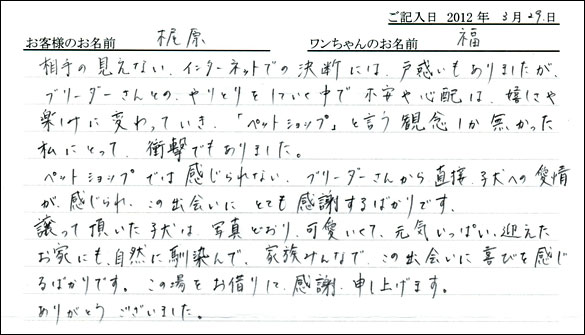 ご記入日 2012年 3月29日
お客様のお名前 梶原 ワンちゃんのお名前 福
相手の見えない、インターネットでの決断には、戸惑いもありましたが、
ブリーダーさんとの、やりとりをしていく中で不安や心配は、嬉しさや
楽しみに変わっていき、「ペットショップ」と言う観念しか無かった
私にとって、衝撃でもありました。
ペットショップでは感じられない、ブリーダーさんから直接、子犬への愛情
が、感じられ、この出会いに とても感謝するばかりです。
譲って頂いた子犬は、写真どおり、可愛いくて、元気いっぱい、迎えた
お家にも、自然に馴染んで、家族みんなで、この出会いに喜びを感じ
るばかりです。この場をお借りして、感謝、申し上げます。
ありがとうございました。